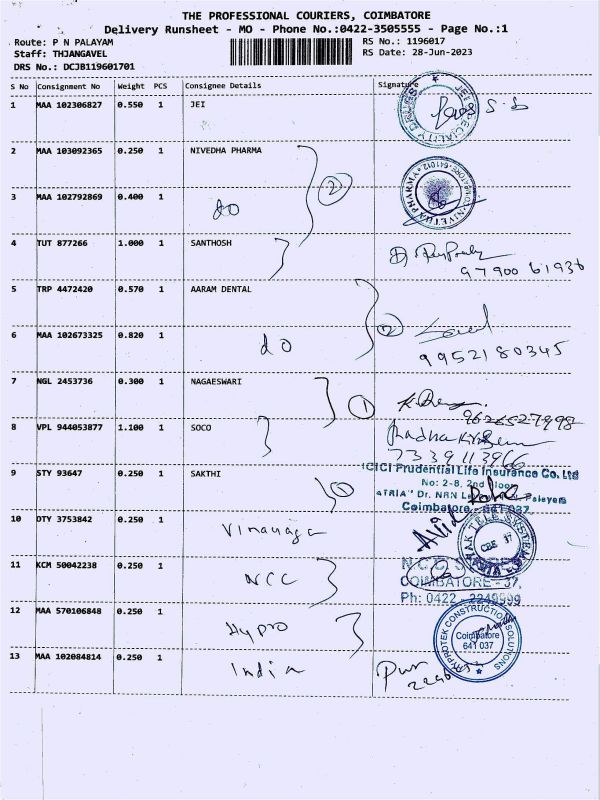 THE PROFESSIONAL COURIERS, COIMBATORE
Delivery Runsheet - MO - Phone No.:0422-3505555 - Page No.:1
Route: P N PALAYAM
Staff: THJANGAVEL
DRS No.: DCJB119601701
RS No.: 1196017
RS Date: 28-Jun-2023
S No Consignment No Weight PCS Consignee Details Signature
1 MAA 102306827 0.550 1 JEI
2 MAA 103092365 0.250 1 NIVEDHA PHARMA
3 MAA 102792869 0.400 1 do
2
4 TUT 877266 1.000 1 SANTHOSH
97900 61936
5 TRP 4472420 0.570 1 AARAM DENTAL
6 MAA 102673325 0.820 1 do
2
9952180345
7 NGL 2453736 0.300 1 NAGAESWARI
1
9626527998
8 VPL 944053877 1.100 1 SOCO
7339113966
9 STY 93647 0.250 1 SAKTHI
1
ICICI Prudential Life Insurance Co. Ltd
No: 2-8, 2nd Floor
"ATRIA" Dr. NRN
Coimbatore - 641 037
10 OTY 3753842 0.250 1 Vinayaga
VINAYAK TELE SYSTEMS
CBE 37
11 KCM 50042238 0.250 1 NCC
COIMBATORE - 37.
Ph: 0422 - 2249999
12 MAA 570106848 0.250 1 Hypro
PROTEK CONSTRUCTION SOLUTIONS
Coimbatore
641 037
13 MAA 102084814 0.250 1 India